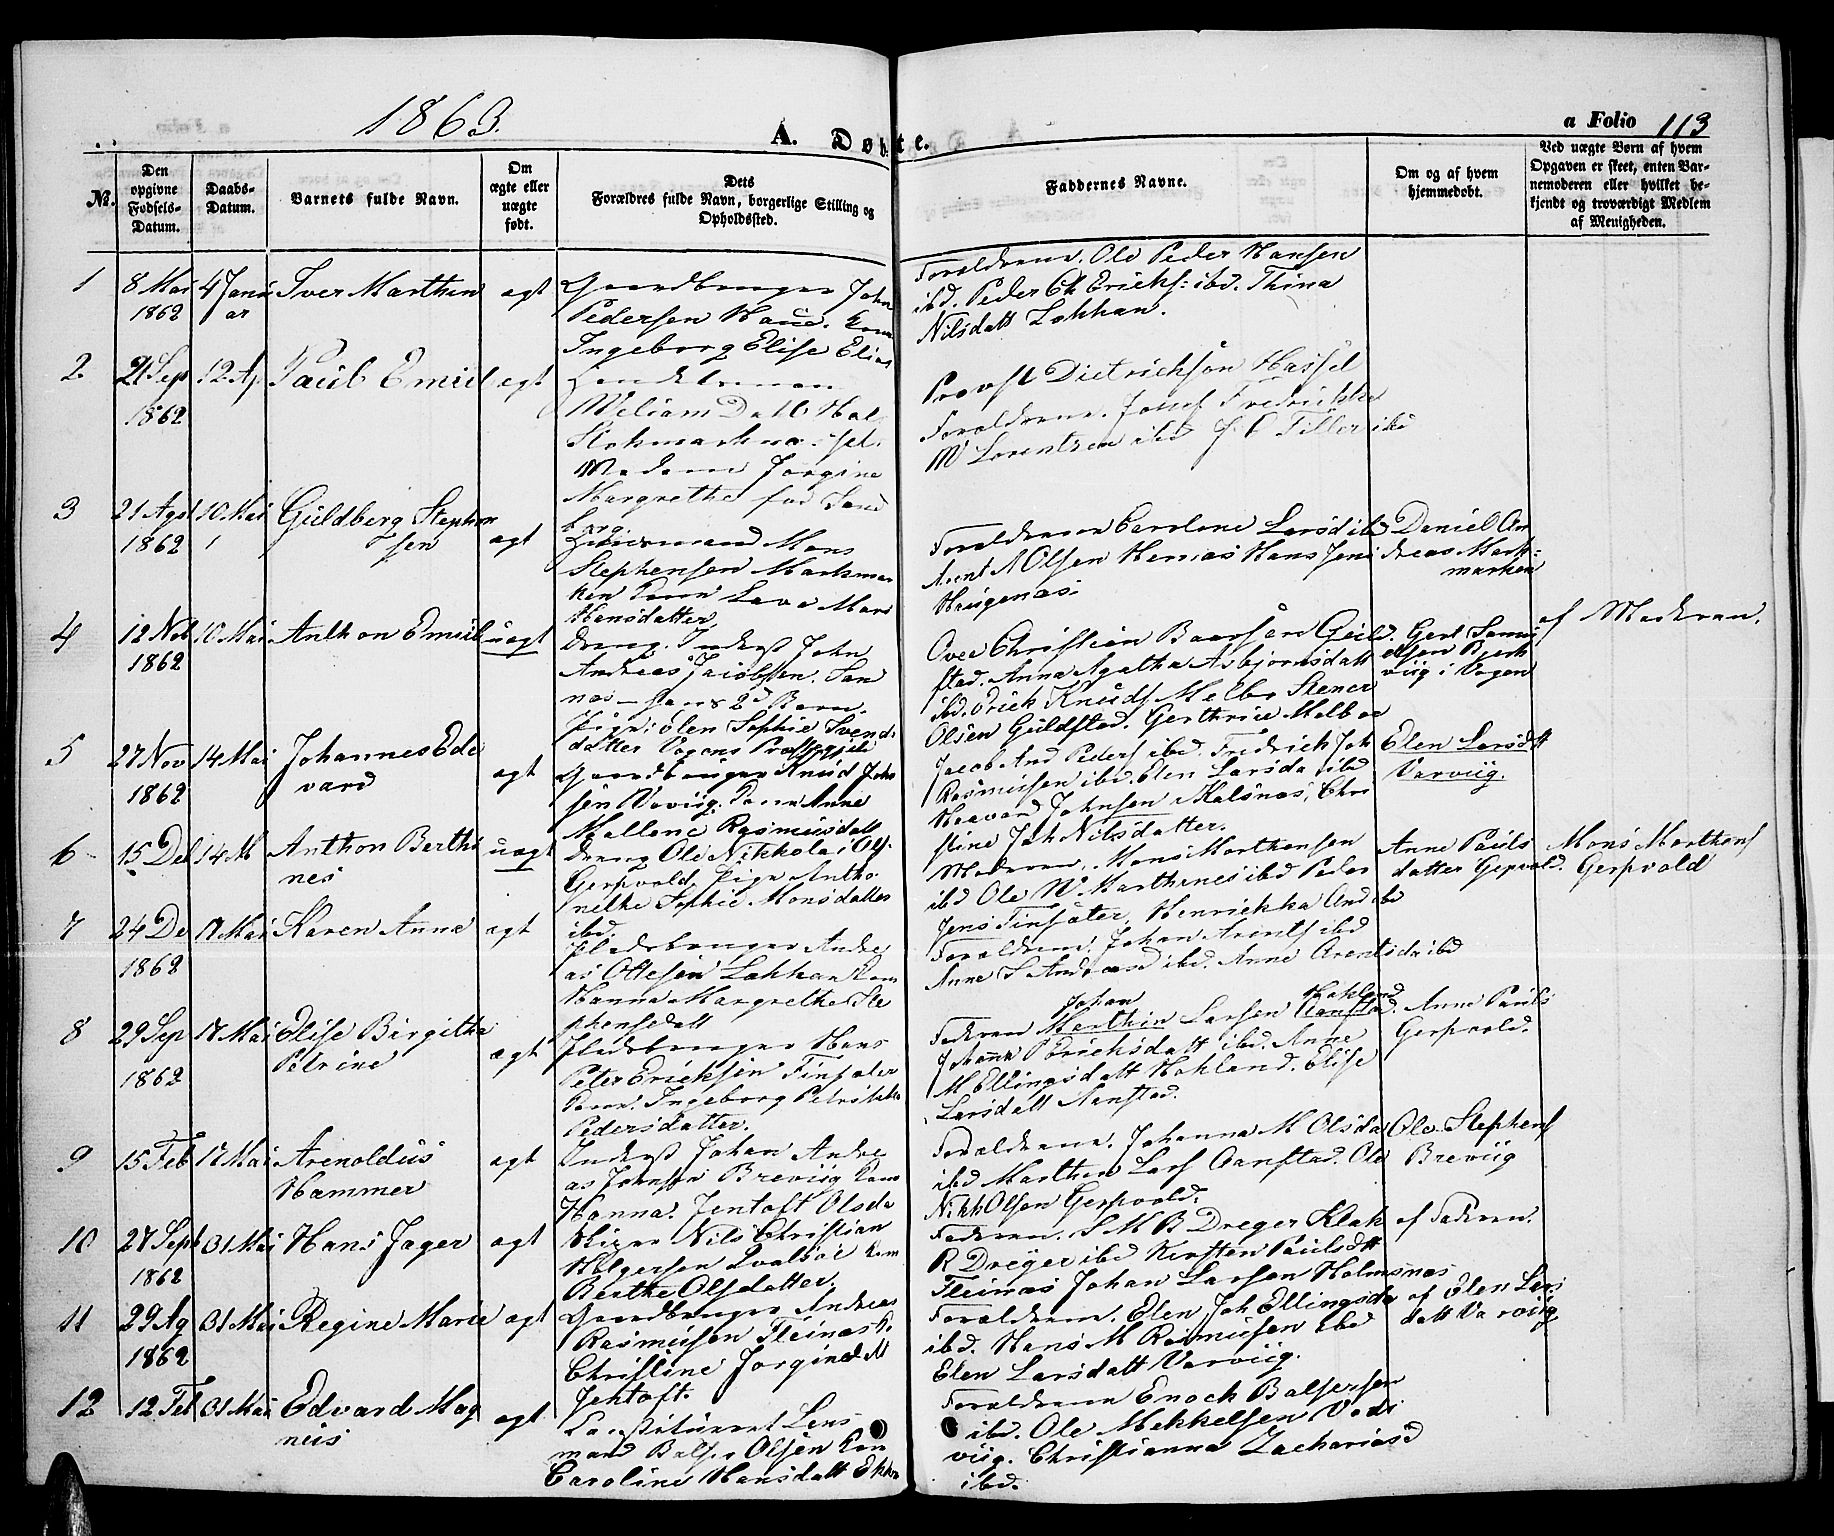 1863.
A. Døbte.
a Folio 113
No.
Den opgivne Fødsels-Datum.
Daabs-Datum.
Barnets fulde Navn.
Om ægte eller uægte født.
Dets Forældres fulde Navn, borgerlige Stilling og Opholdssted.
Faddernes Navne.
Om og af hvem hjemmedøbt.
Ved uægte Børn af hvem Opgaven er skeet, enten Barnemoderen eller hvilket bekjendt og troværdigt Medlem af Menigheden.
1
8 Mai 1862
4 Janu ar
Iver Marthin
ægt
Gaardbruger John
Pedersen Haue. Kone
Ingeborg Elise Elias
Forældrene. Ole Peder Hansen
ibd. Peder Ch Ericks: ibd. Thina
Nilsdatt Lahhan.
2
21 Sep 1862
12 Ap
Paul Emiil
ægt
Handelsman
Wiliam Dall Hal
Stokmarknæ
Madame Jorgine
Margrethe fød Sand
berg.
Provst Dietrichson Hassel
Forældrene. Josef Fredrikke
M Lorentzen ibd Tiller ibd
3
21 Agst 1862
10 Mai
Guldberg Stephen
sen
ægt
Huusmand Mons
Stephensen Markmar
ken Kone Lava Mari
Hansdatter
Forældrene Carolene Larsd ibd
Arent A Olsen Hernæs Hans Jens
Haugenæs.
Daniel An
dreas Mark-
marken
4
12 Nov 1862
10 Mai
Anthon Emiil
uægt
Dreng. Inderst John
Andreas Jacobsen. San
næs – hans 2d Barn.
Pige: Elen Sophie Svends
datter Vogens Præstegield
Ove Christian Baarsen Guld
stad. Anna Agatha Asbjornsdatt
ibd. Erick Knuds Melbo Stener
Olsen Guldstad. Gerthrue Melboe
Gert Samu
elsen Bjerk
viig i Vogen
af Moderen.
5
27 Nov 1862
14 Mai
Johannes Ede
vard
ægt
Gaardbruger Knud John
sen Varviig. Kone Anne
Mallene Rasmusdatt
Jacob And Peders ibd. Fredrich Joh
Rasmussen ibd. Elen Larsda ibd
Haavard Johnsen Kalsnæs, Chri
stine Joh Nilsdatter.
Elen Larsdtt
Varviig.
6
15 Des
14 M
Anthon Berthi
nes
uægt
Dreng Ole Nikkolai Ols.
Gerpvold Pige Antho
nelke Sophie Monsdatter
ibd.
Moderen. Mons Marthensen
ibd Ole N. Marthines ibd Peder
Jens Finsæter, Henrikka And ibd
Anne Pauls
datter Gepvold.
Mons Marthens
Gerpvold
7
24 De 1862
17 Mai
Karen Anna
ægt
Pladsbruger Andre
as Ottesen Lahhan Kone
Hanna Margrethe Ste
phensdatt
Forældrene. Johan Arents ibd
Anne S Andreasd ibd. Anne Arentsda ibd
8
29 Sep 1862
17 Mai
Elise Birgitha
Petrine
ægt
Pladsbruger Hans
Peter Ericksen Finsæter
Kone. Ingeborg Petrikka
Pedersdatter.
Johan Hokland
Faderen Marthin Larsen Aanstad.
Johanna Ericksdatt ibd. Anne
M Ellingsdatt Hokland. Elise
Larsdatt Aanstad.
Anne Pauls
Gerpvold.
9
15 Feb
17 Mai
Arenoldus
Hammer
ægt
Inderst Johan Andre
as Johnsen Breviig Kone
Hanna Jentoft Olsda
Forældrene. Johanna M Olsda
ibd Marthin Lars Aanstad. Ole
Nikk Olsen Gerpvold.
Ole Stephens
Breviig
10
27 Sept 1862
31 Mai
Hans Jager
ægt
Nils Christian
Holgersen Qvalsøe Kone
Berthe Olsdatter.
Faderen. S M B Dreyer Klak
R Dreyer ibd Kirsten Paulsdtt
Fleinæs Johan Larsen Holmsnæs
af Faderen.
11
29 Ag 1862
31 Mai
Regine Marie
ægt
Gaardbruger Andreas
Rasmussen Fleinæs K.
Christine Jorgine M
Jentoft.
Forældrene. Elen Joh Ellingsda
ibd. Hans M Rasmussen ibd
Elen Larsdatt Varviig.
af Elen Lars
datt Varviig
12
12 Feb
31 Mai
Edvard Mag
nus
ægt
Constitueret Lens
mand Balser Olsen Kone
Caroline Hansdatt
Forældrene Enoch Balsersen
ibd. Ole Mekkelsen Vodi
viig. Christianna Zachariasd
ibd.